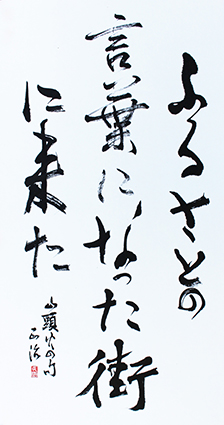 ふるさとの
言葉になった街
に来た
山頭火の句